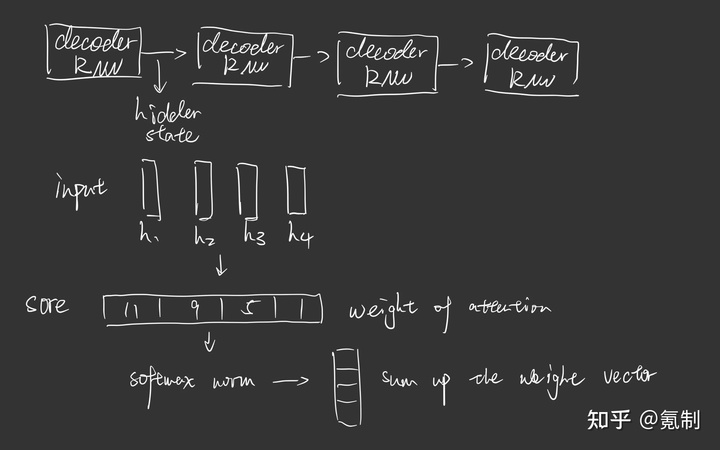 decoder RNN decoder RNN decoder RNN decoder RNN
hidden state
input
h1 h2 h3 h4
sore 11 9 5 1 weight of attention
softmax norm sum up the weight vector
知乎 @氪制